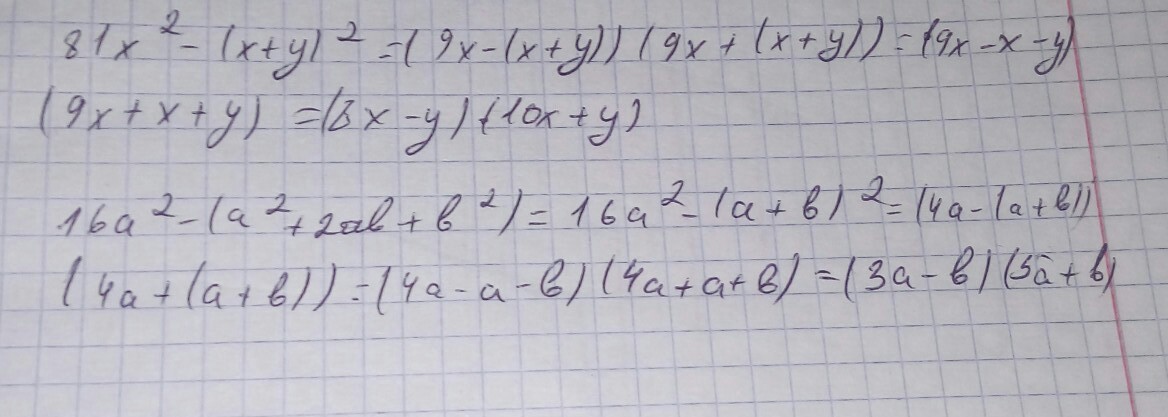 81x² - (x+y)² = (9x-(x+y)) (9x + (x+y)) = (9x - x - y)
(9x + x + y) = (8x - y) (10x + y)
16a² - (a² + 2ab + b²) = 16a² - (a + b)² = (4a - (a + b))
(4a + (a + b)) = (4a - a - b) (4a + a + b) = (3a - b) (5a + b)